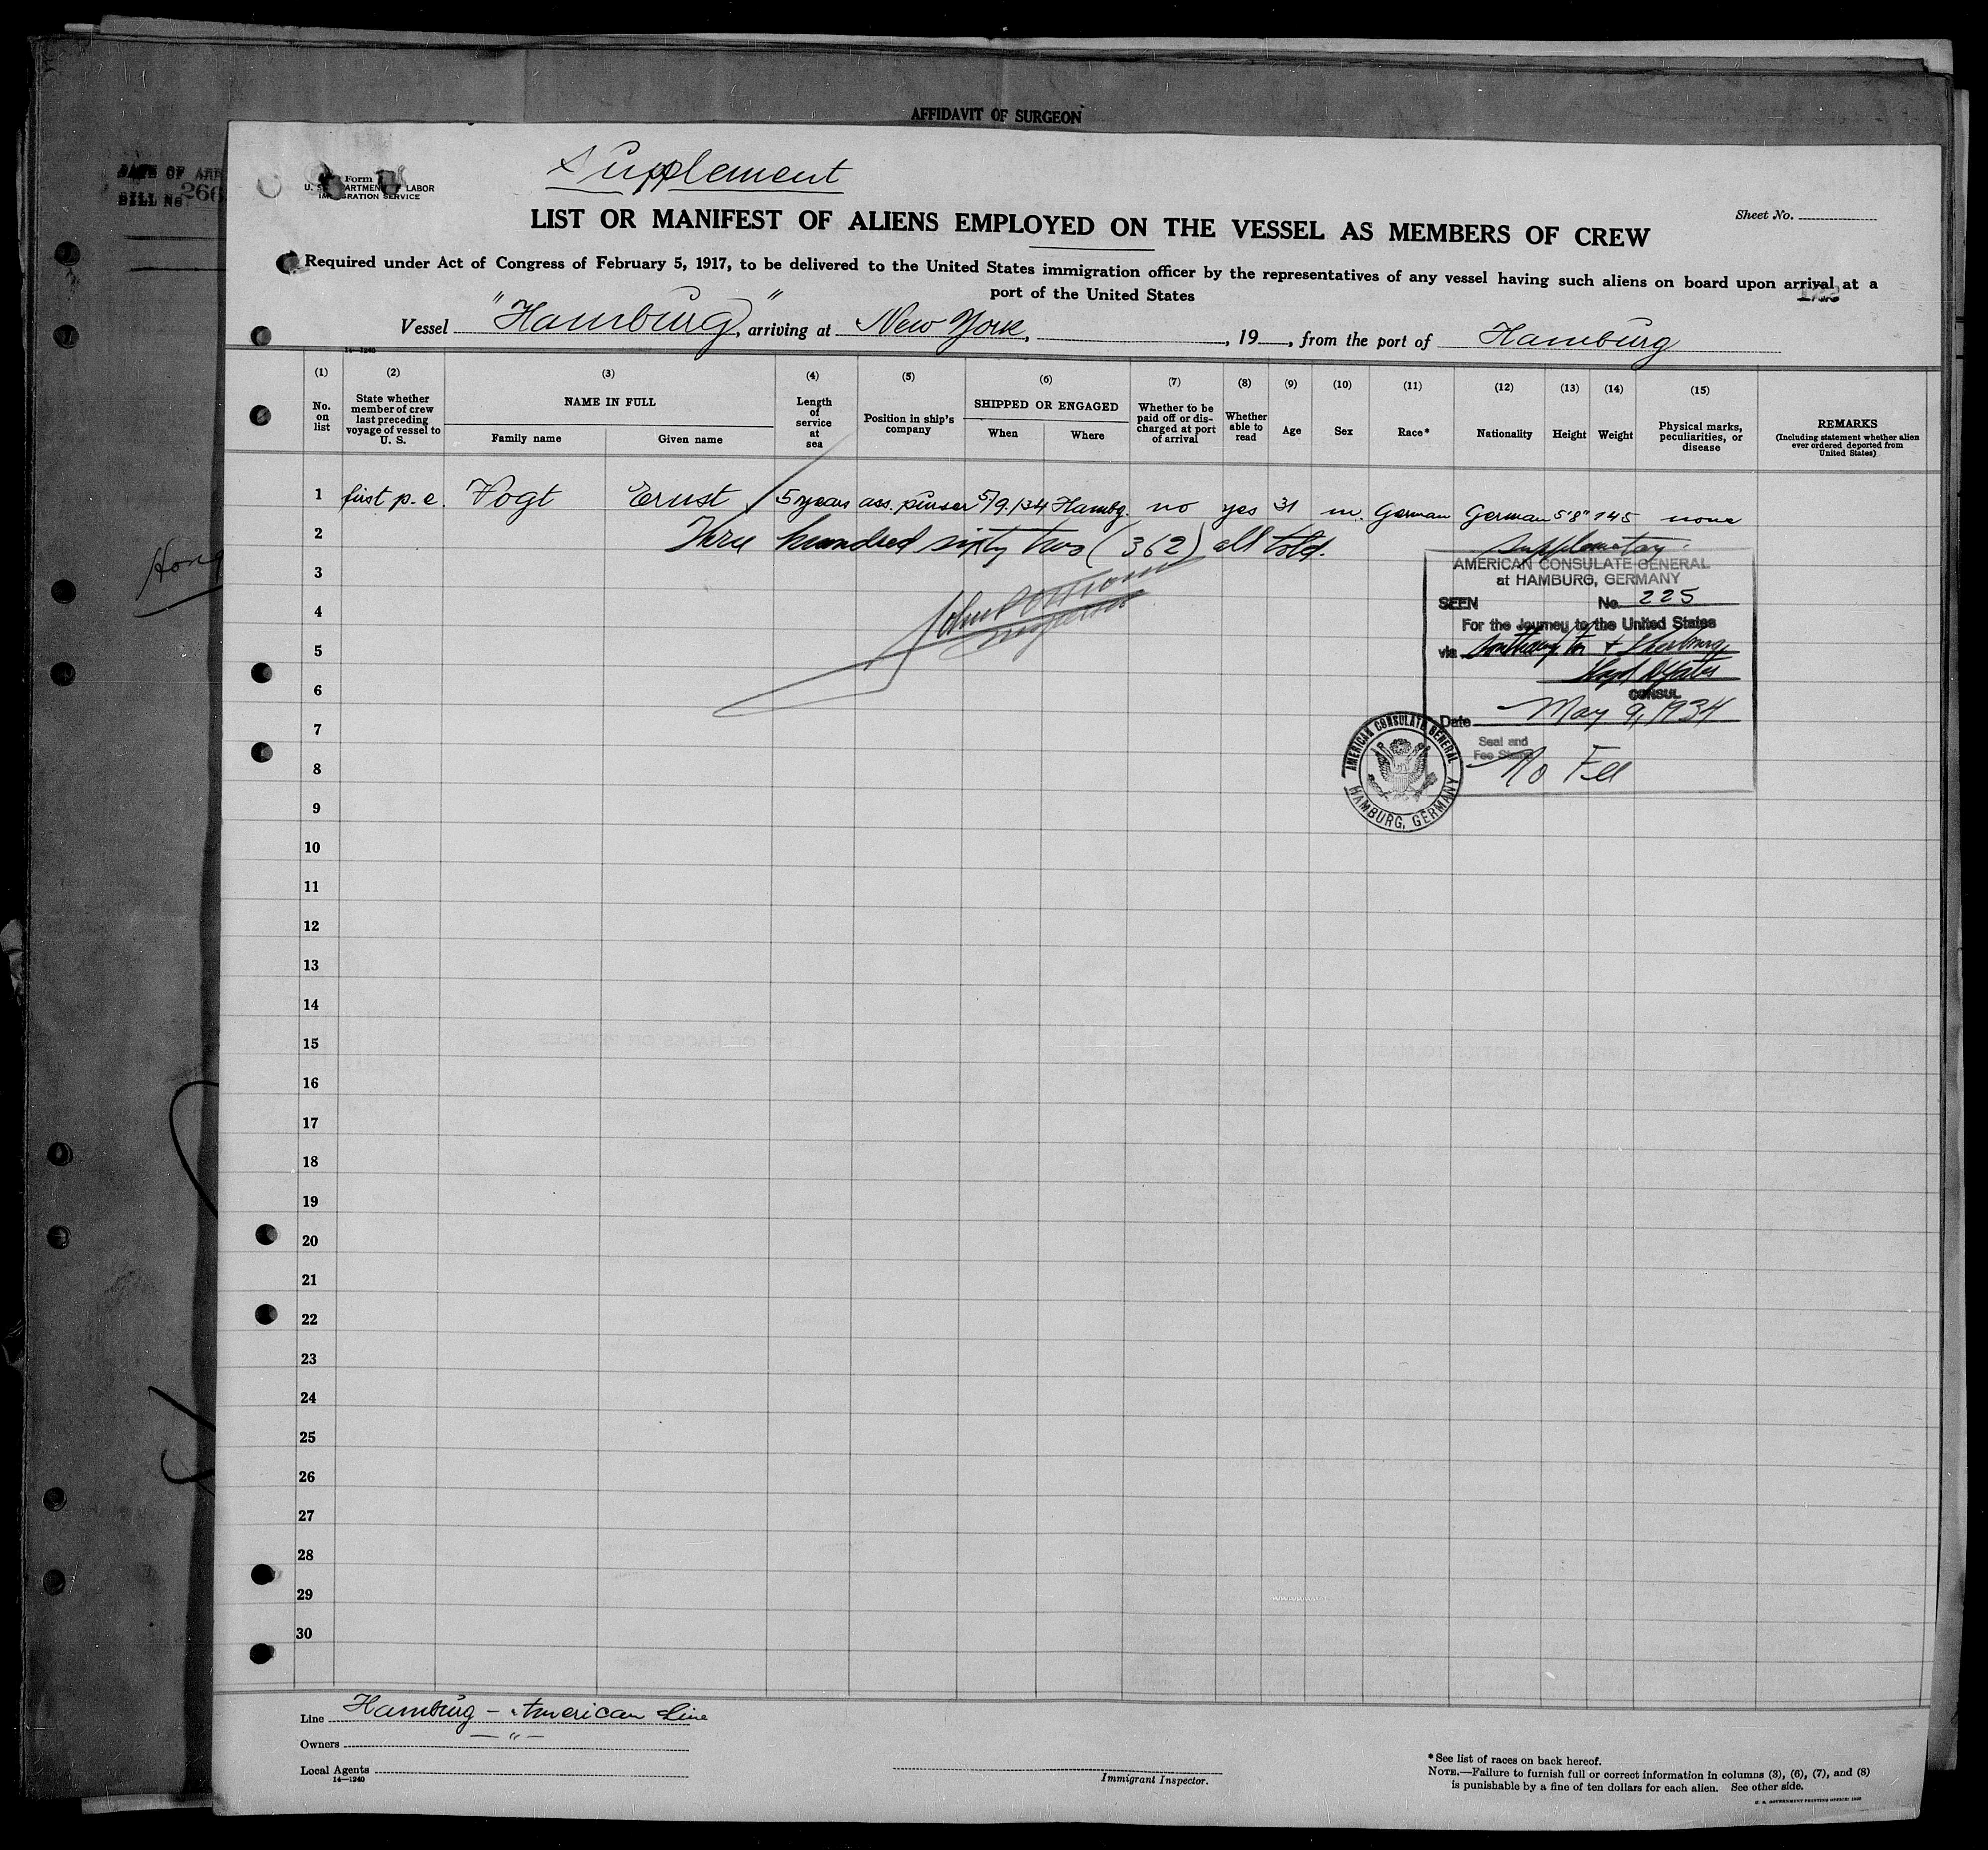 AFFIDAVIT OF SURGEON
BILL No 266
Hong
Supplement
Form
U. S. DEPARTMENT OF LABOR
IMMIGRATION SERVICE
Sheet No.
LIST OR MANIFEST OF ALIENS EMPLOYED ON THE VESSEL AS MEMBERS OF CREW
Required under Act of Congress of February 5, 1917, to be delivered to the United States immigration officer by the representatives of any vessel having such aliens on board upon arrival at a
port of the United States
Vessel "Hamburg", arriving at New York, , 19 , from the port of Hamburg
14—1240
(1) (2) (3) (4) (5) (6) (7) (8) (9) (10) (11) (12) (13) (14) (15)
No. on list
State whether member of crew last preceding voyage of vessel to U. S.
NAME IN FULL
Family name Given name
Length of service at sea
Position in ship's company
SHIPPED OR ENGAGED
When Where
Whether to be paid off or discharged at port of arrival
Whether able to read
Age
Sex
Race*
Nationality
Height
Weight
Physical marks, peculiarities, or disease
REMARKS
(Including statement whether alien ever ordered deported from United States)
1 first p. e. Vogt Ernst 5 years ass. purser 5/9.134 Hambg. no yes 31 m. German German 5'8" 145 none
2 Three hundred sixty two (362) all told.
3
4
5
6
7
8
9
10
11
12
13
14
15
16
17
18
19
20
21
22
23
24
25
26
27
28
29
30
supplementary
AMERICAN CONSULATE GENERAL
at HAMBURG, GERMANY
SEEN No. 225
For the Journey to the United States
via Southampton + Cherbourg
CONSUL
Date May 9, 1934
Seal and
Fee Stamp
No Fee
AMERICAN CONSULATE GENERAL
HAMBURG, GERMANY
Line Hamburg-American Line
Owners —"—
Local Agents
14—1240
Immigrant Inspector.
*See list of races on back hereof.
NOTE.—Failure to furnish full or correct information in columns (3), (6), (7), and (8)
is punishable by a fine of ten dollars for each alien. See other side.